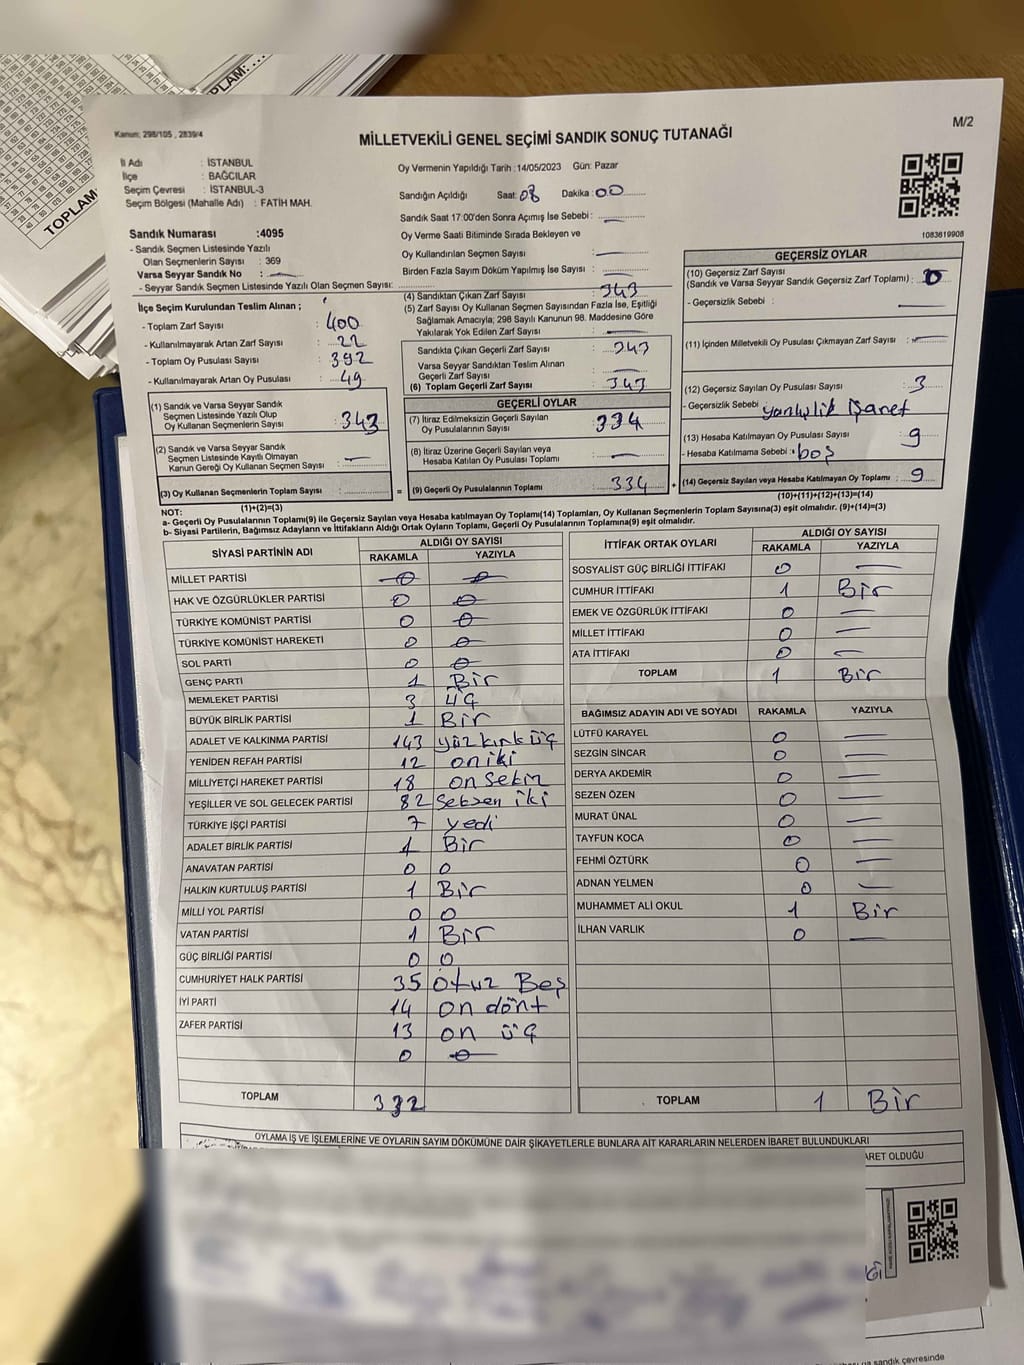 TOPLAM: ...
TOPLAM
Kanun; 298/105 , 2839/4
M/2
MİLLETVEKİLİ GENEL SEÇİMİ SANDIK SONUÇ TUTANAĞI
İl Adı : İSTANBUL
İlçe : BAĞCILAR
Seçim Çevresi : İSTANBUL-3
Seçim Bölgesi (Mahalle Adı) : FATİH MAH.
Oy Vermenin Yapıldığı Tarih :14/05/2023 Gün: Pazar
Sandığın Açıldığı Saat: 08 Dakika: 00
Sandık Saat 17:00'den Sonra Açımış İse Sebebi :
Oy Verme Saati Bitiminde Sırada Bekleyen ve
Oy Kullandırılan Seçmen Sayısı :
Birden Fazla Sayım Döküm Yapılmış İse Sayısı :
1083619908
Sandık Numarası :4095
- Sandık Seçmen Listesinde Yazılı
Olan Seçmenlerin Sayısı : 369
Varsa Seyyar Sandık No :
- Seyyar Sandık Seçmen Listesinde Yazılı Olan Seçmen Sayısı:
İlçe Seçim Kurulundan Teslim Alınan ;
- Toplam Zarf Sayısı : 400
- Kullanılmayarak Artan Zarf Sayısı : 22
- Toplam Oy Pusulası Sayısı : 392
- Kullanılmayarak Artan Oy Pusulası : 49
(1) Sandık ve Varsa Seyyar Sandık
Seçmen Listesinde Yazılı Olup
Oy Kullanan Seçmenlerin Sayısı : 343
(2) Sandık ve Varsa Seyyar Sandık
Seçmen Listesinde Kayıtlı Olmayan
Kanun Gereği Oy Kullanan Seçmen Sayısı : —
(3) Oy Kullanan Seçmenlerin Toplam Sayısı :
(1)+(2)=(3)
(4) Sandıktan Çıkan Zarf Sayısı : 343
(5) Zarf Sayısı Oy Kullanan Seçmen Sayısından Fazla İse, Eşitliği
Sağlamak Amacıyla; 298 Sayılı Kanunun 98. Maddesine Göre
Yakılarak Yok Edilen Zarf Sayısı : —
Sandıkta Çıkan Geçerli Zarf Sayısı : 343
Varsa Seyyar Sandıktan Teslim Alınan
Geçerli Zarf Sayısı : —
(6) Toplam Geçerli Zarf Sayısı : 343
GEÇERLİ OYLAR
(7) İtiraz Edilmeksizin Geçerli Sayılan
Oy Pusulalarının Sayısı : 334
(8) İtiraz Üzerine Geçerli Sayılan veya
Hesaba Katılan Oy Pusulası Toplamı : —
= (9) Geçerli Oy Pusulalarının Toplamı : 334 +
GEÇERSİZ OYLAR
(10) Geçersiz Zarf Sayısı
(Sandık ve Varsa Seyyar Sandık Geçersiz Zarf Toplamı) :
- Geçersizlik Sebebi : —
(11) İçinden Milletvekili Oy Pusulası Çıkmayan Zarf Sayısı : —
(12) Geçersiz Sayılan Oy Pusulası Sayısı : 3
- Geçersizlik Sebebi yanlışlık işaret
(13) Hesaba Katılmayan Oy Pusulası Sayısı : 9
- Hesaba Katılmama Sebebi : boş
(14) Geçersiz Sayılan veya Hesaba Katılmayan Oy Toplamı : 9
(10)+(11)+(12)+(13)=(14)
NOT:
a- Geçerli Oy Pusulalarının Toplamı(9) ile Geçersiz Sayılan veya Hesaba katılmayan Oy Toplamı(14) Toplamları, Oy Kullanan Seçmenlerin Toplam Sayısına(3) eşit olmalıdır. (9)+(14)=(3)
b- Siyasi Partilerin, Bağımsız Adayların ve İttifakların Aldığı Ortak Oyların Toplamı, Geçerli Oy Pusulalarının Toplamına(9) eşit olmalıdır.
SİYASİ PARTİNİN ADI ALDIĞI OY SAYISI
RAKAMLA YAZIYLA
MİLLET PARTİSİ 0 0
HAK VE ÖZGÜRLÜKLER PARTİSİ 0 0
TÜRKİYE KOMÜNİST PARTİSİ 0 0
TÜRKİYE KOMÜNİST HAREKETİ 0 0
SOL PARTİ 0 0
GENÇ PARTİ 1 Bir
MEMLEKET PARTİSİ 3 üç
BÜYÜK BİRLİK PARTİSİ 1 Bir
ADALET VE KALKINMA PARTİSİ 143 yüz kırk üç
YENİDEN REFAH PARTİSİ 12 on iki
MİLLİYETÇİ HAREKET PARTİSİ 18 on sekiz
YEŞİLLER VE SOL GELECEK PARTİSİ 82 Seksen iki
TÜRKİYE İŞÇİ PARTİSİ 7 yedi
ADALET BİRLİK PARTİSİ 1 Bir
ANAVATAN PARTİSİ 0 0
HALKIN KURTULUŞ PARTİSİ 1 Bir
MİLLİ YOL PARTİSİ 0 0
VATAN PARTİSİ 1 Bir
GÜÇ BİRLİĞİ PARTİSİ 0 0
CUMHURİYET HALK PARTİSİ 35 otuz Beş
İYİ PARTİ 14 on dört
ZAFER PARTİSİ 13 on üç
0 0
TOPLAM 332
İTTİFAK ORTAK OYLARI ALDIĞI OY SAYISI
RAKAMLA YAZIYLA
SOSYALİST GÜÇ BİRLİĞİ İTTİFAKI 0 —
CUMHUR İTTİFAKI 1 Bir
EMEK VE ÖZGÜRLÜK İTTİFAKI 0 —
MİLLET İTTİFAKI 0 —
ATA İTTİFAKI 0 —
TOPLAM 1 Bir
BAĞIMSIZ ADAYIN ADI VE SOYADI RAKAMLA YAZIYLA
LÜTFÜ KARAYEL 0 —
SEZGİN SİNCAR 0 —
DERYA AKDEMİR 0 —
SEZEN ÖZEN 0 —
MURAT ÜNAL 0 —
TAYFUN KOCA 0 —
FEHMİ ÖZTÜRK 0 —
ADNAN YELMEN 0 —
MUHAMMET ALİ OKUL 1 Bir
İLHAN VARLIK 0 —
TOPLAM 1 Bir
OYLAMA İŞ VE İŞLEMLERİNE VE OYLARIN SAYIM DÖKÜMÜNE DAİR ŞİKAYETLERLE BUNLARA AİT KARARLARIN NELERDEN İBARET BULUNDUKLARI
ARET OLDUĞU
sandık çevresinde